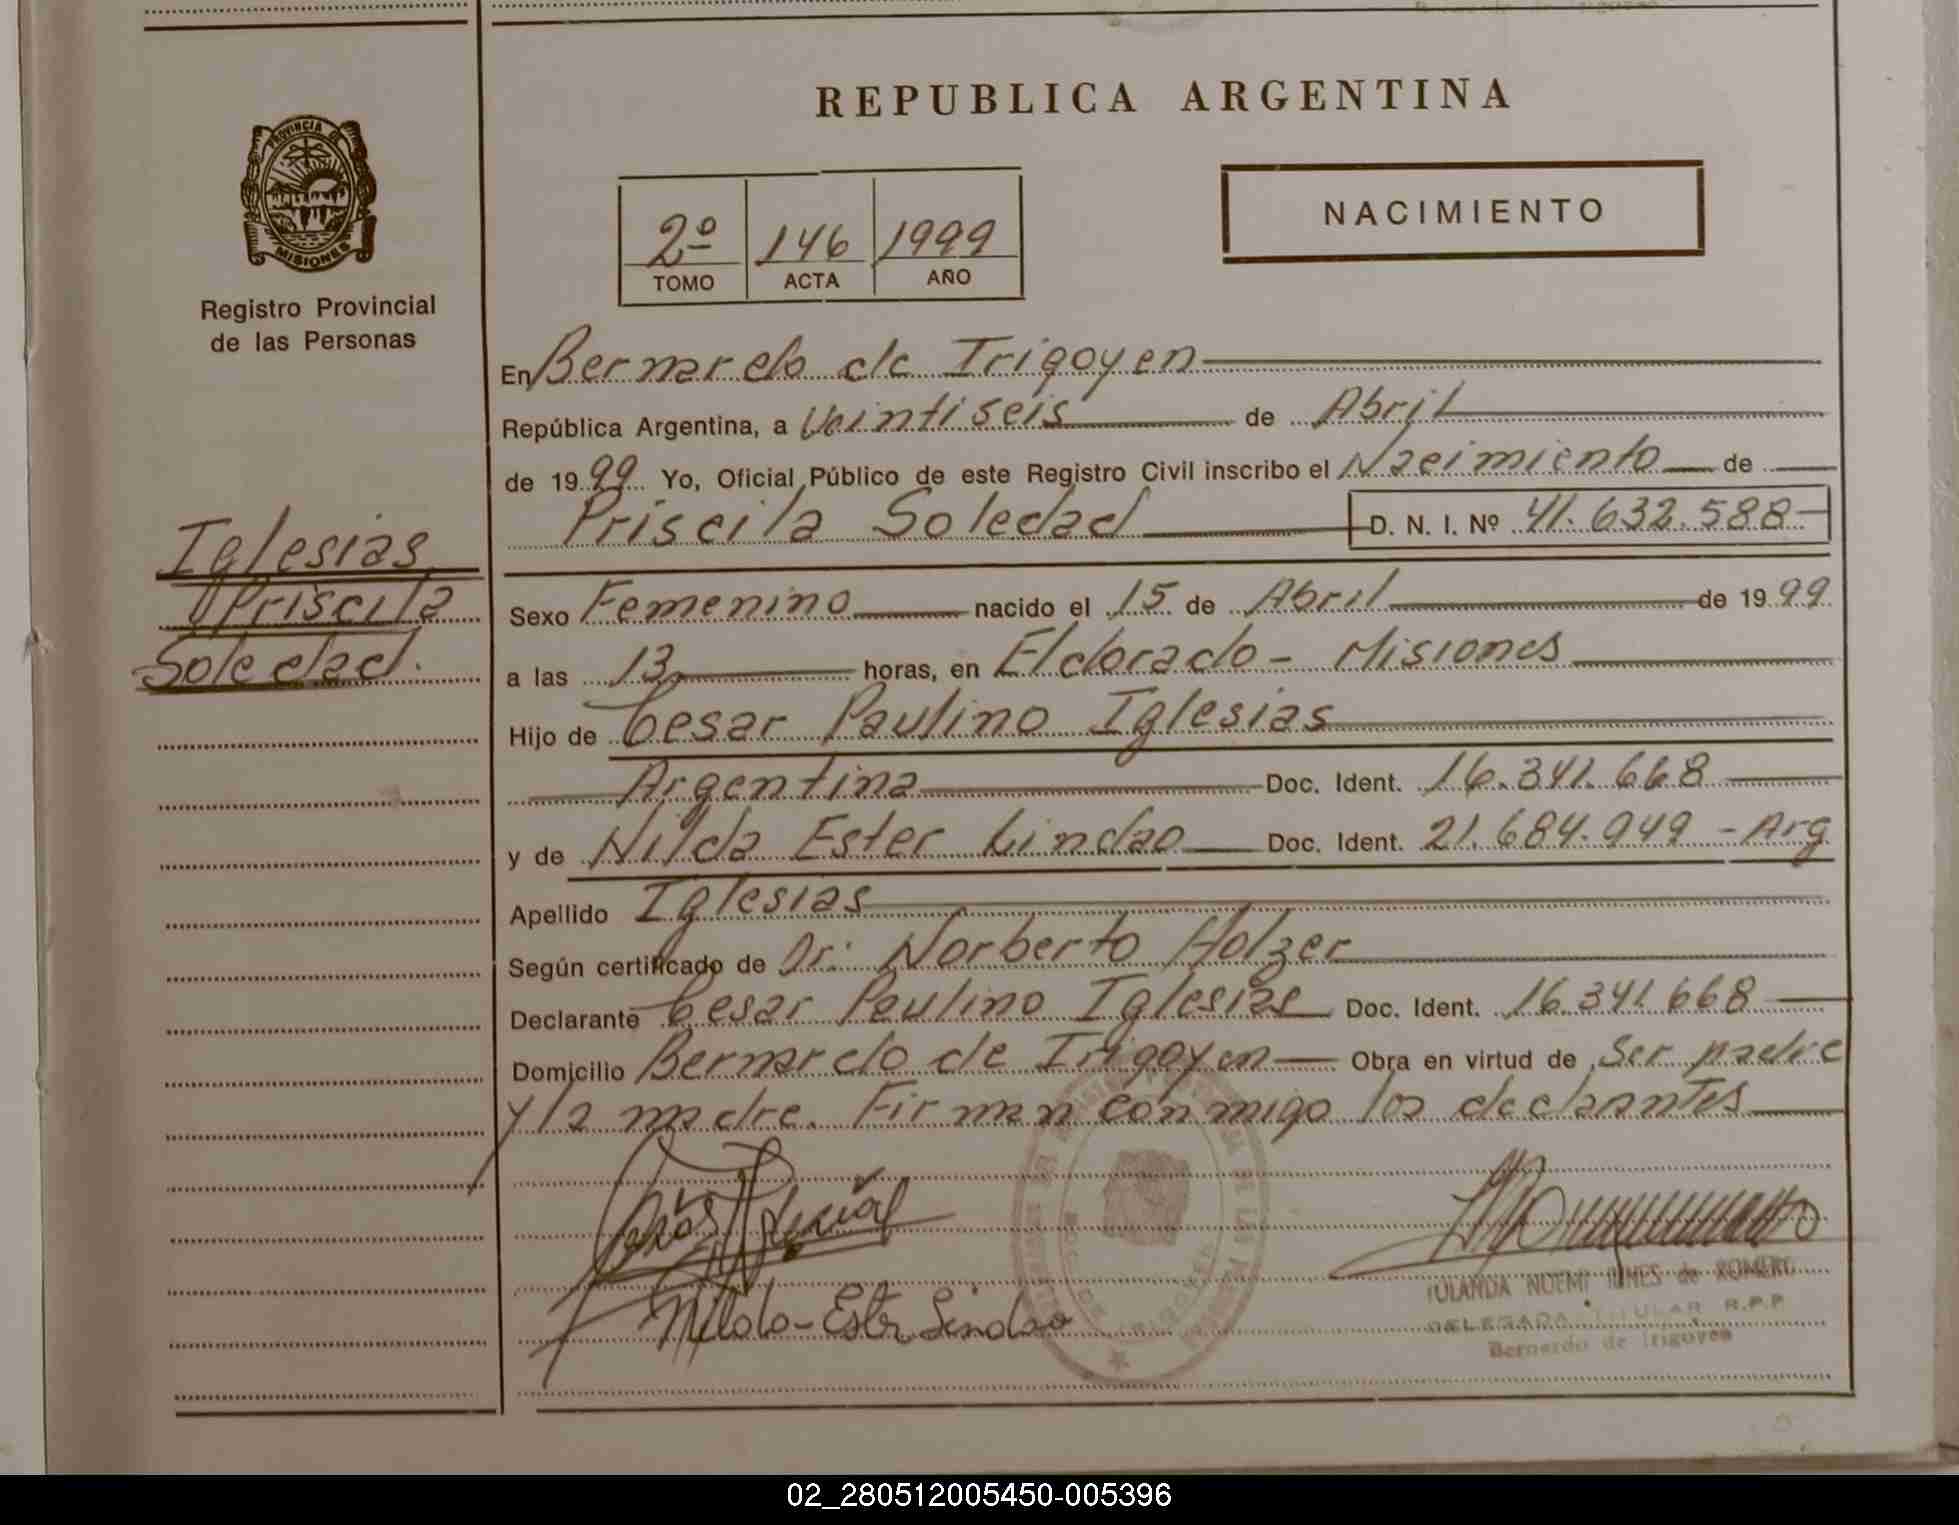 REPUBLICA ARGENTINA
PROVINCIA DE
MISIONES
Registro Provincial
de las Personas
2º 146 1999
TOMO ACTA AÑO
NACIMIENTO
Iglesias
Priscila
Soledad.
En Bernardo de Irigoyen
República Argentina, a Veintiseis de Abril
de 1999 Yo, Oficial Público de este Registro Civil inscribo el Nacimiento de
Priscila Soledad D. N. I. Nº 41.632.588
Sexo Femenino nacido el 15 de Abril de 1999
a las 13 horas, en Eldorado - Misiones
Hijo de Cesar Paulino Iglesias
Argentina Doc. Ident. 16.341.668
y de Nilda Ester Lindao Doc. Ident. 21.684.949 - Arg
Apellido Iglesias
Según certificado de Dr: Norberto Holzer
Declarante Cesar Paulino Iglesias Doc. Ident. 16.341.668
Domicilio Bernardo de Irigoyen Obra en virtud de Ser padre
y la madre. Firman conmigo los declarantes
Nilda-Ester Lindao
NOEMI de ROMERO
DELEGADA TITULAR R.P.P
Bernardo de Irigoyen
02_280512005450-005396